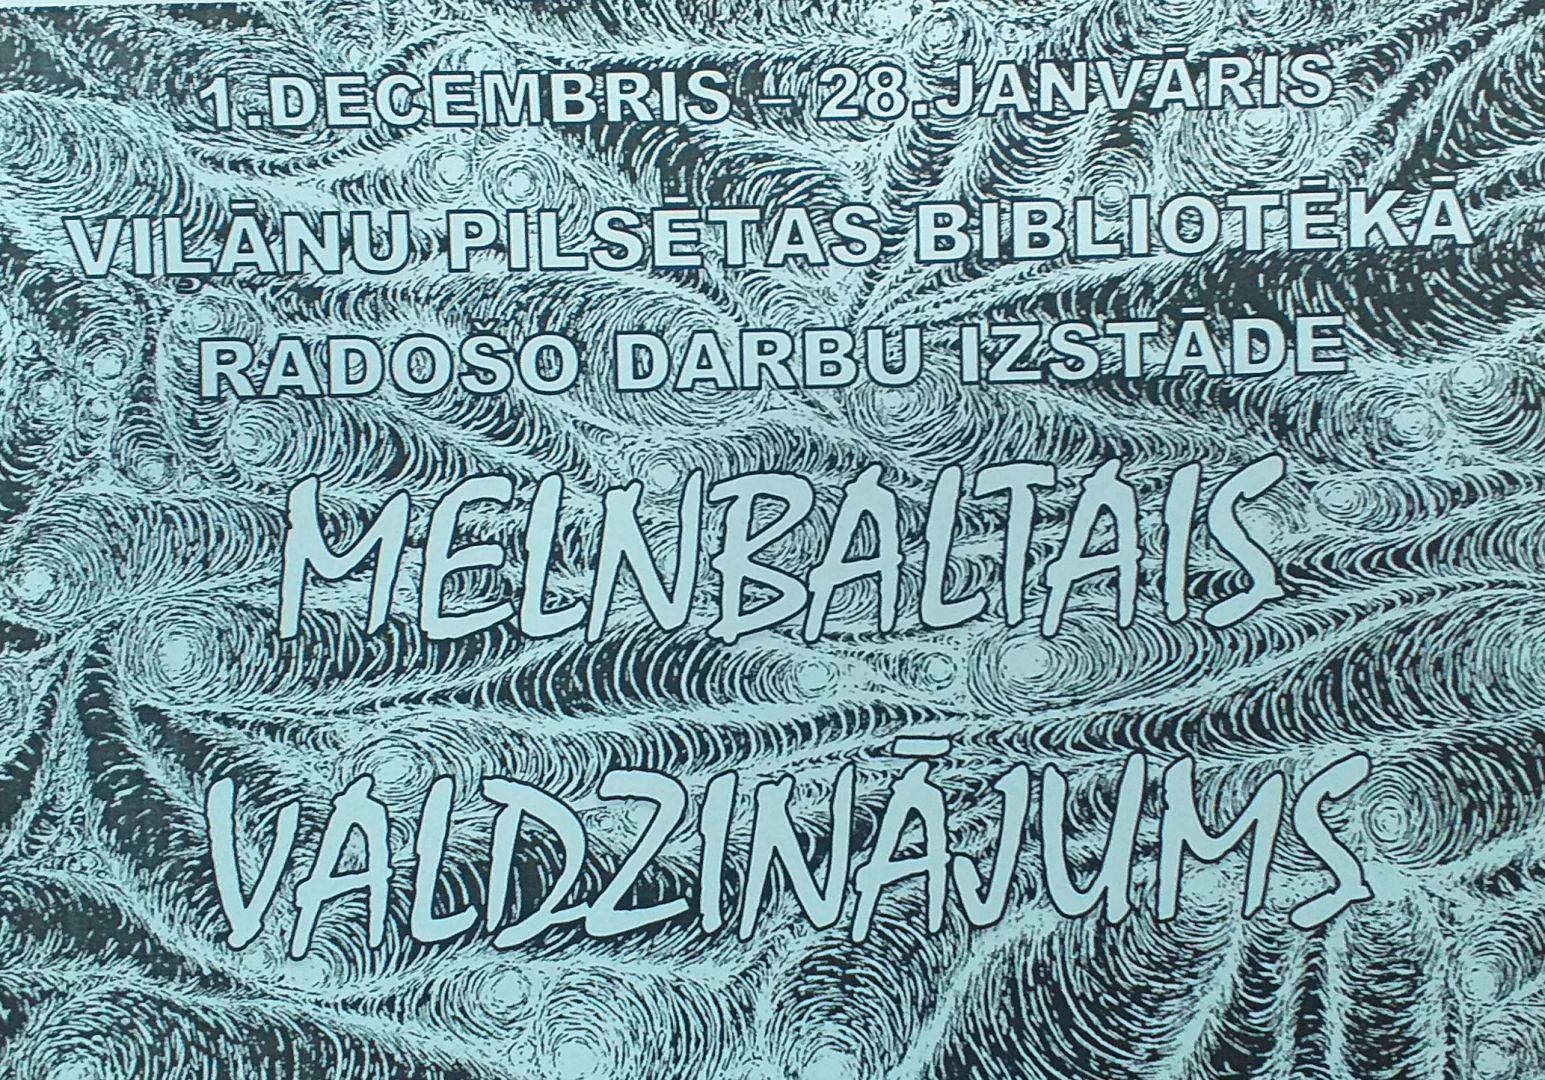 1.DECEMBRIS – 28.JANVĀRIS
VIĻĀNU PILSĒTAS BIBLIOTĒKĀ
RADOŠO DARBU IZSTĀDE
MELNBALTAIS
VALDZINĀJUMS